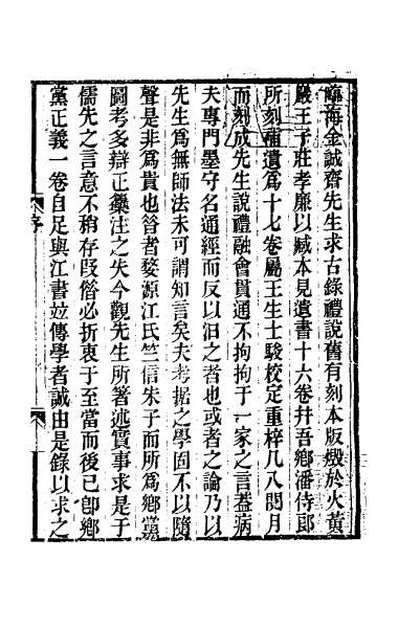 臨海金誠齋先生求古錄禮說舊有刻本版燬於火黃
巖王子莊孝廉以臧本見遺書十六卷幷吾鄉潘侍郎
所刻補遺爲十七卷屬王生士駿校定重梓几八閱月
而刻成先生說禮融會貫通不拘拘于一家之言蓋病
夫專門墨守名通經而反以汩之者也或者之論乃以
先生爲無師法未可謂知言矣夫考据之學固不以隨
聲是非爲貴也昝者婺源江氏竺信朱子而所爲鄉黨
圖考多辯正藥注之失今觀先生所著述實事求是于
儒先之言意不稍存叚俻必折衷于至當而後已卽鄉
黨正義一卷自足與江書竝傳學者誠由是錄以求之
序